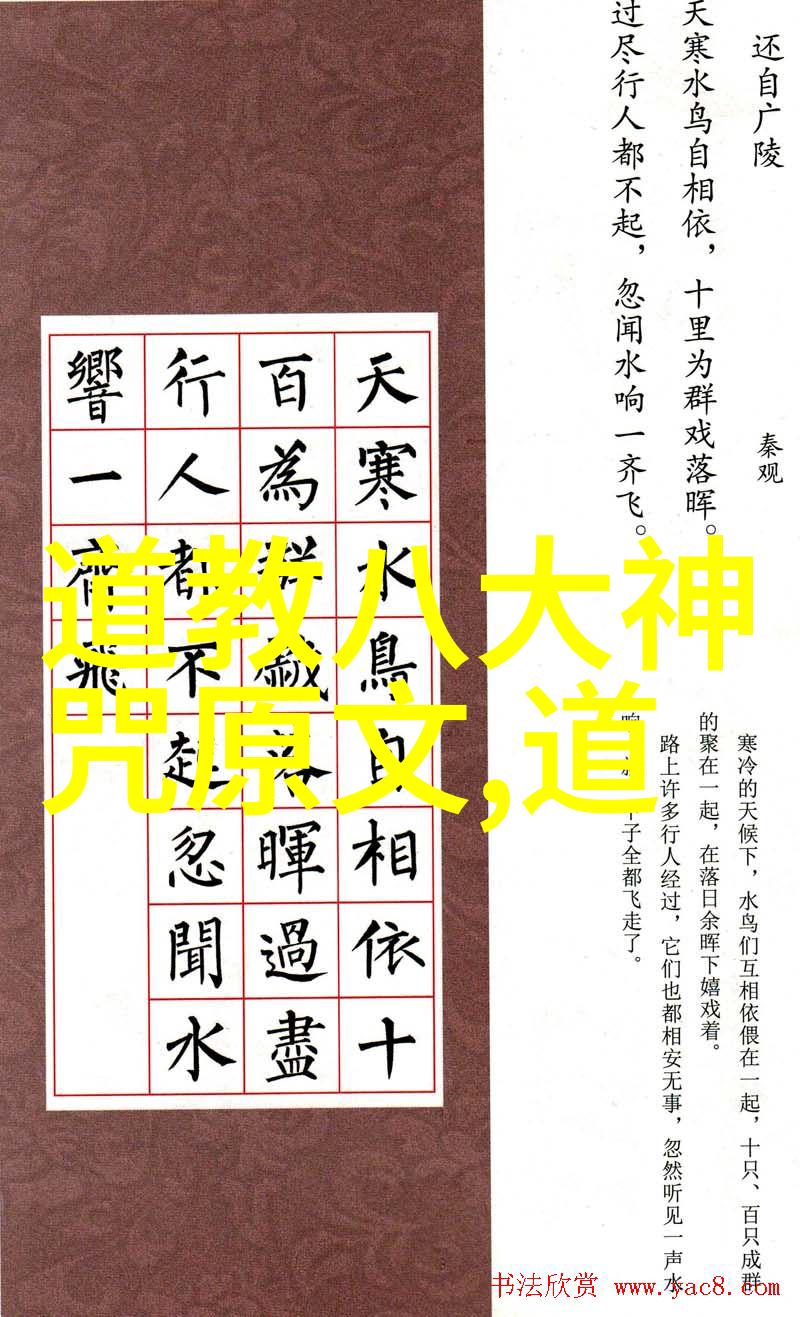 还自广陵
秦观
天寒水鸟自相依，十里为群戏落晖。
过尽行人都不起，忽闻水响一齐飞。
寒冷的天候下，水鸟们互相依偎在一起，十只、百只成群
的聚在一起，在落日余晖下嬉戏着。
路上许多行人经过，它们也都相安无事，忽然听见一声水
响，子全都飞走了。
天寒水鳥自相依十
百為群戲落暉過盡
行人都不起忽聞水
響一齊飛
道教八大神
咒原文,道
书法欣赏 www.yac8.com